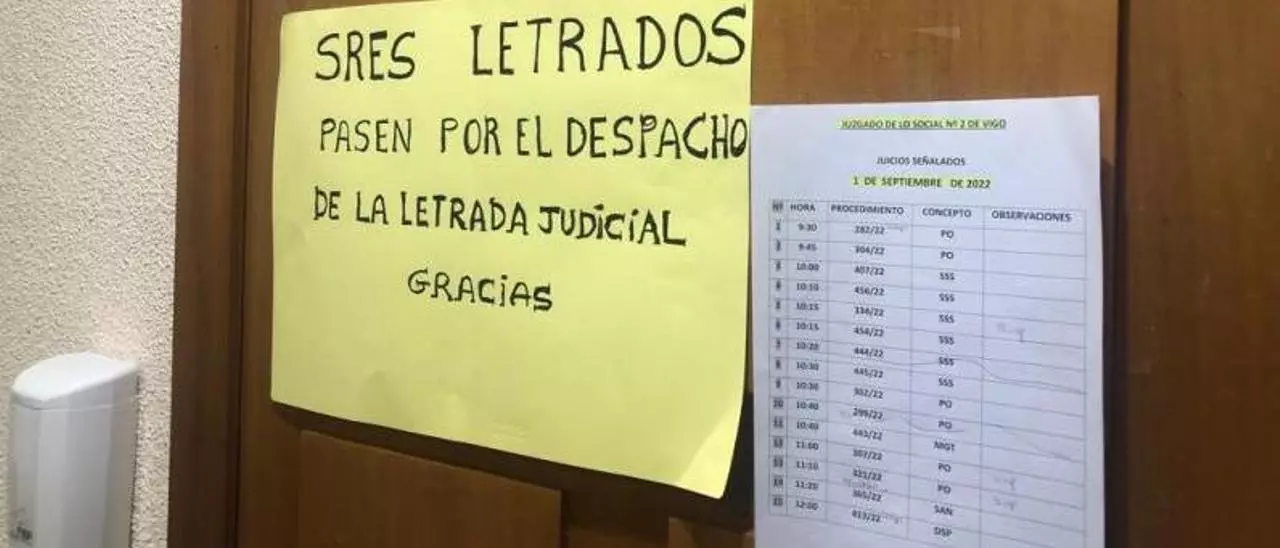 SRES LETRADOS
PASEN POR EL DESPACHO
DE LA LETRADA JUDICIAL
GRACIAS
JUZGADO DE LO SOCIAL Nº 2 DE VIGO
JUICIOS SEÑALADOS
1 DE SEPTIEMBRE DE 2022
Nº HORA PROCEDIMIENTO CONCEPTO OBSERVACIONES
1 9:30 282/22 PO
2 9:45 304/22 PO
3 10:00 407/22 SSS
4 10:10 456/22 SSS
5 10:15 336/22 SSS
6 10:15 454/22 SSS
7 10:20 444/22 SSS
8 10:30 445/22 SSS
9 10:30 302/22 PO
10 10:40 299/22 PO
11 10:40 443/22 MGT
12 11:00 307/22 PO
13 11:10 321/22 PO
14 11:20 365/22 SAN
15 12:00 413/22 DSP